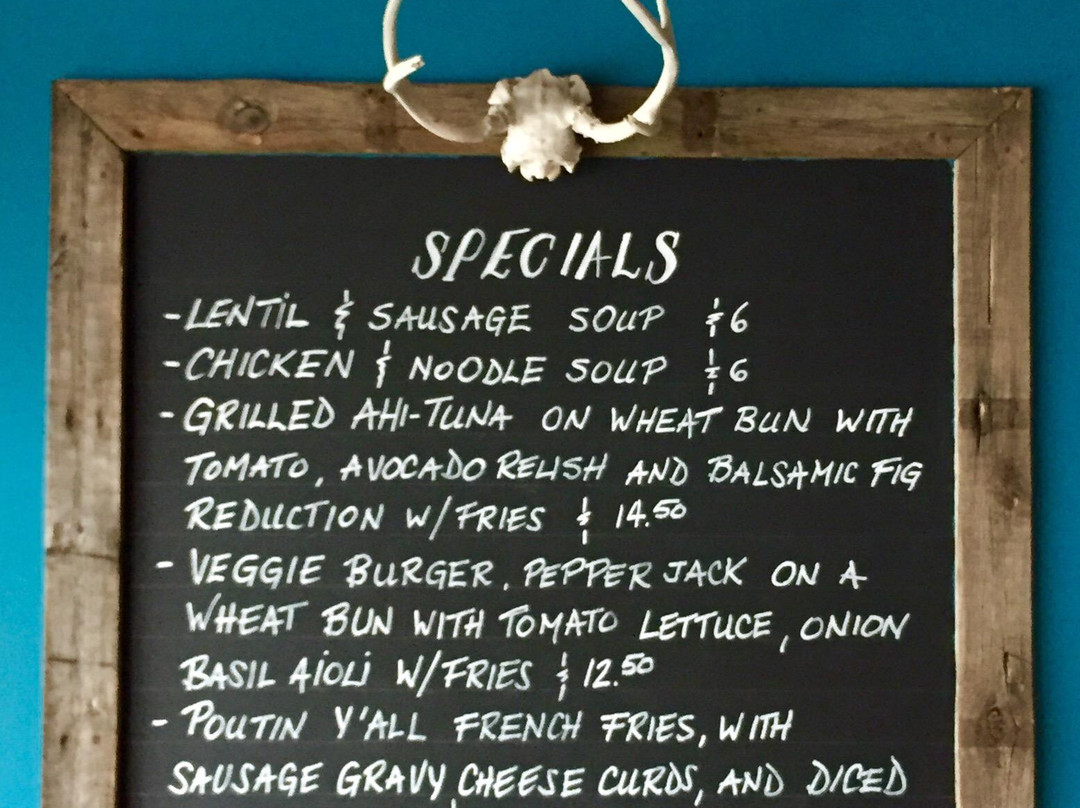 SPECIALS
-LENTIL & SAUSAGE SOUP $6
-CHICKEN & NOODLE SOUP $6
-GRILLED AHI-TUNA ON WHEAT BUN WITH
TOMATO, AVOCADO RELISH AND BALSAMIC FIG
REDUCTION W/FRIES $ 14.50
- VEGGIE BURGER, PEPPER JACK ON A
WHEAT BUN WITH TOMATO LETTUCE, ONION
BASIL AIOLI W/FRIES $ 12.50
- POUTIN Y'ALL FRENCH FRIES, WITH
SAUSAGE GRAVY, CHEESE CURDS, AND DICED